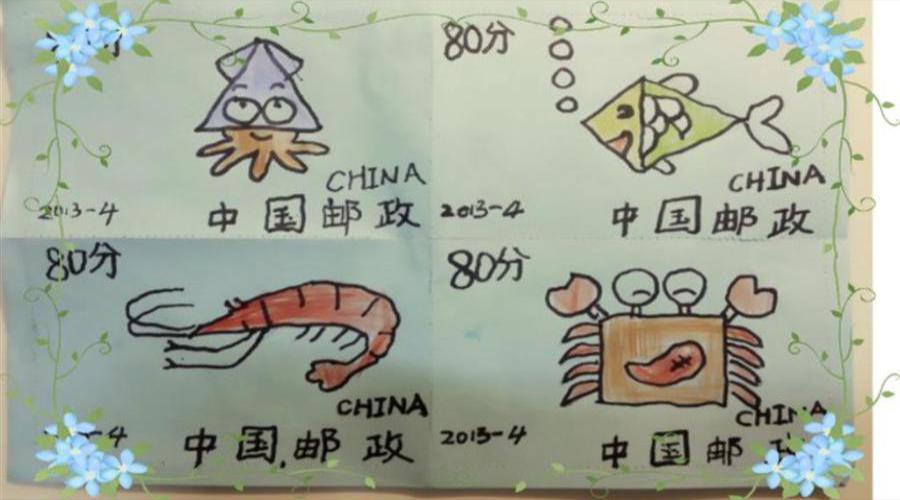 CHINA
2013-4
中国邮政
80分
CHINA
2013-4
中国邮政
80分
CHINA
中国邮政
80分
CHINA
2013-4
中国邮